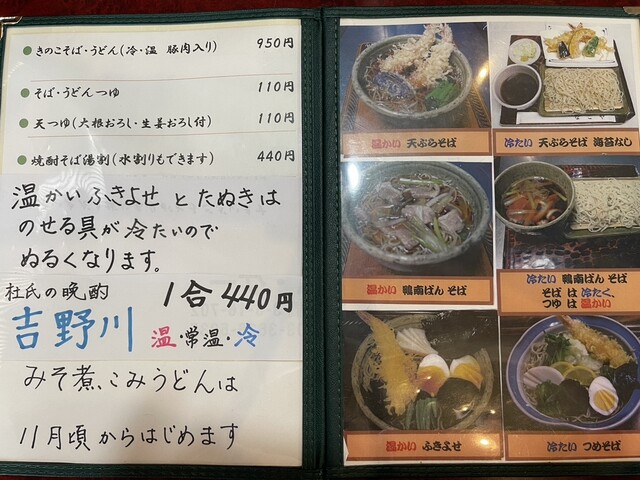 ● きのこそば・うどん(冷・温 豚肉入り) 950円
● そば・うどんつゆ 110円
● 天つゆ(大根おろし・生姜おろし付) 110円
● 焼酎そば湯割(水割りもできます) 440円
温かいふきよせ と たぬきは
のせる具が 冷たいので
ぬるくなります。
杜氏の晩酌 1合 440円
吉野川 温・常温・冷
みそ煮、こみうどんは
11月頃 からはじめます
温かい 天ぷらそば
冷たい 天ぷらそば 海苔なし
温かい 鴨南ばん そば
冷たい 鴨南ばん そば
そば は 冷たく、
つゆ は 温かい
温かい ふきよせ
冷たい つめそば